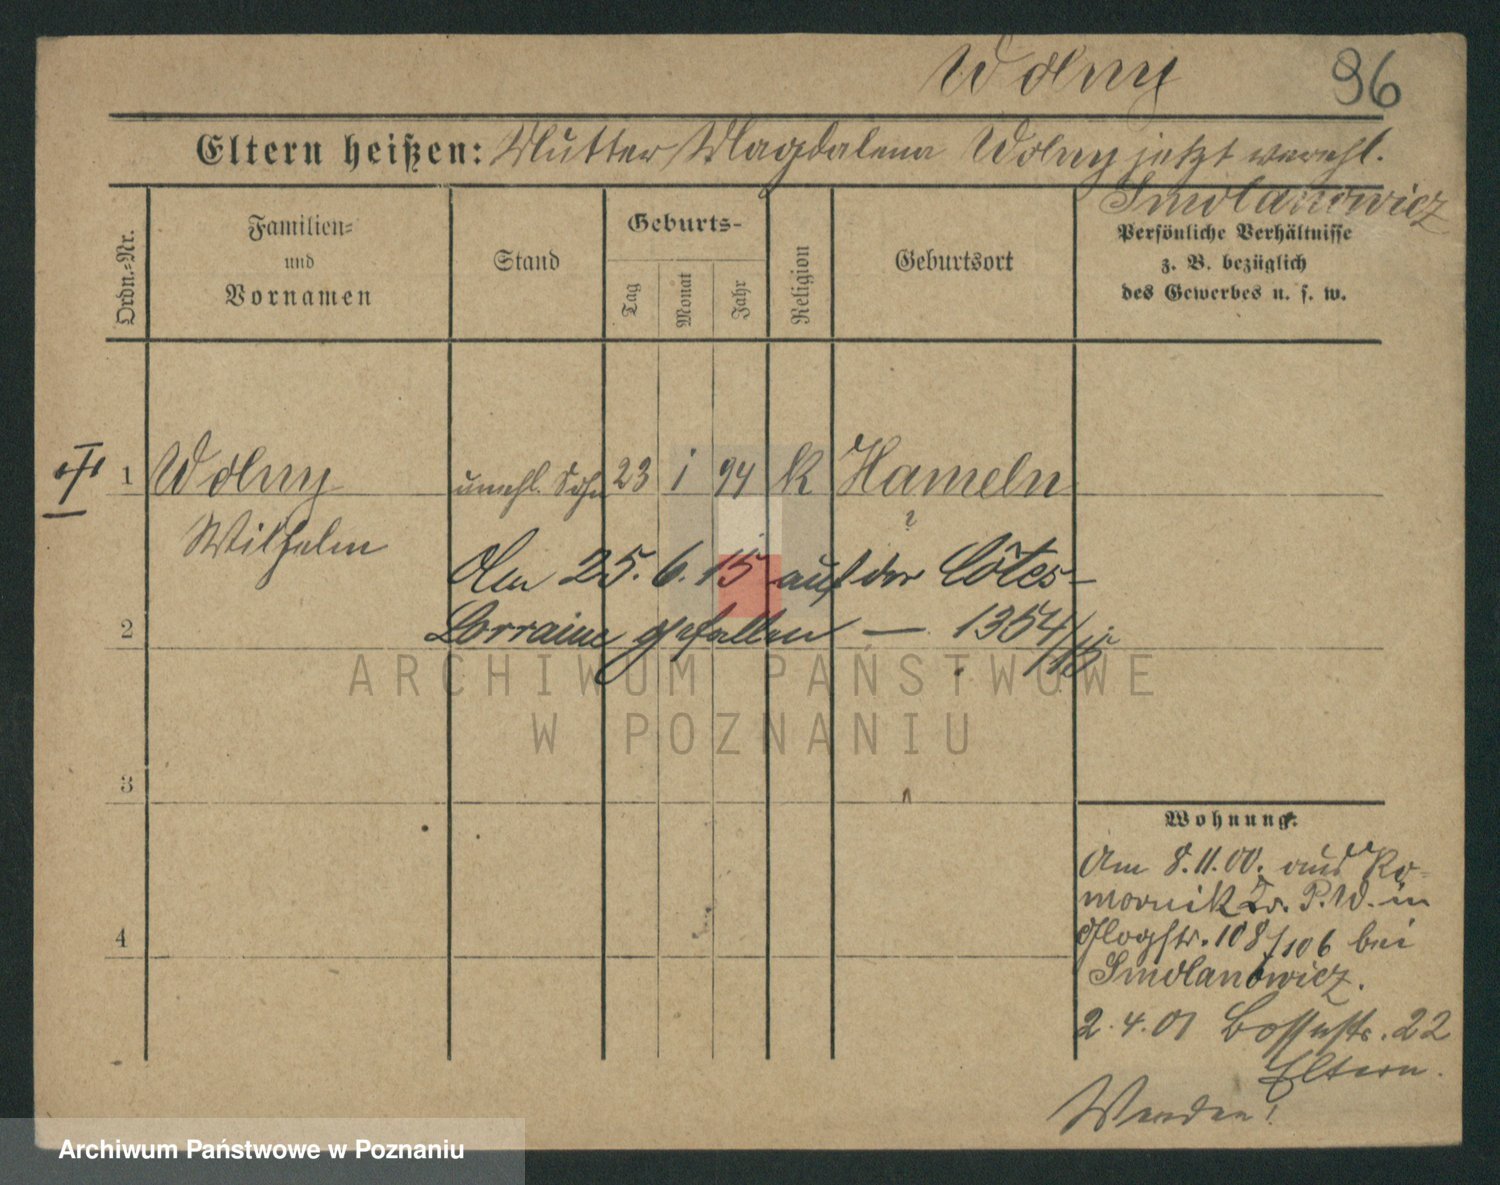 Wolny 96
Eltern heißen: Mutter Magdalena Wolny jetzt verehl.
Smolanowicz
Ordn.=Nr.
Familien=
und
Vornamen
Stand
Geburts-
Tag
Monat
Jahr
Religion
Geburtsort
Persönliche Verhältnisse
z. B. bezüglich
des Gewerbes u. s. w.
1 Wolny unehl. Sohn 23 1 94 k Hameln
?
Wilhelm
Am 25. 6. 15 auf der Côtes-
2
Lorraine gefallen — 1354/15
ARCHIWUM PAŃSTWOWE
W POZNANIU
3
4
Wohnung.
Am 8.11.00. aus Ko-
mornik Kr. P.W. in
Glogstr. 108/106 bei
Smolanowicz.
2.4.01 22
Eltern.
Wenden!
Archiwum Państwowe w Poznaniu